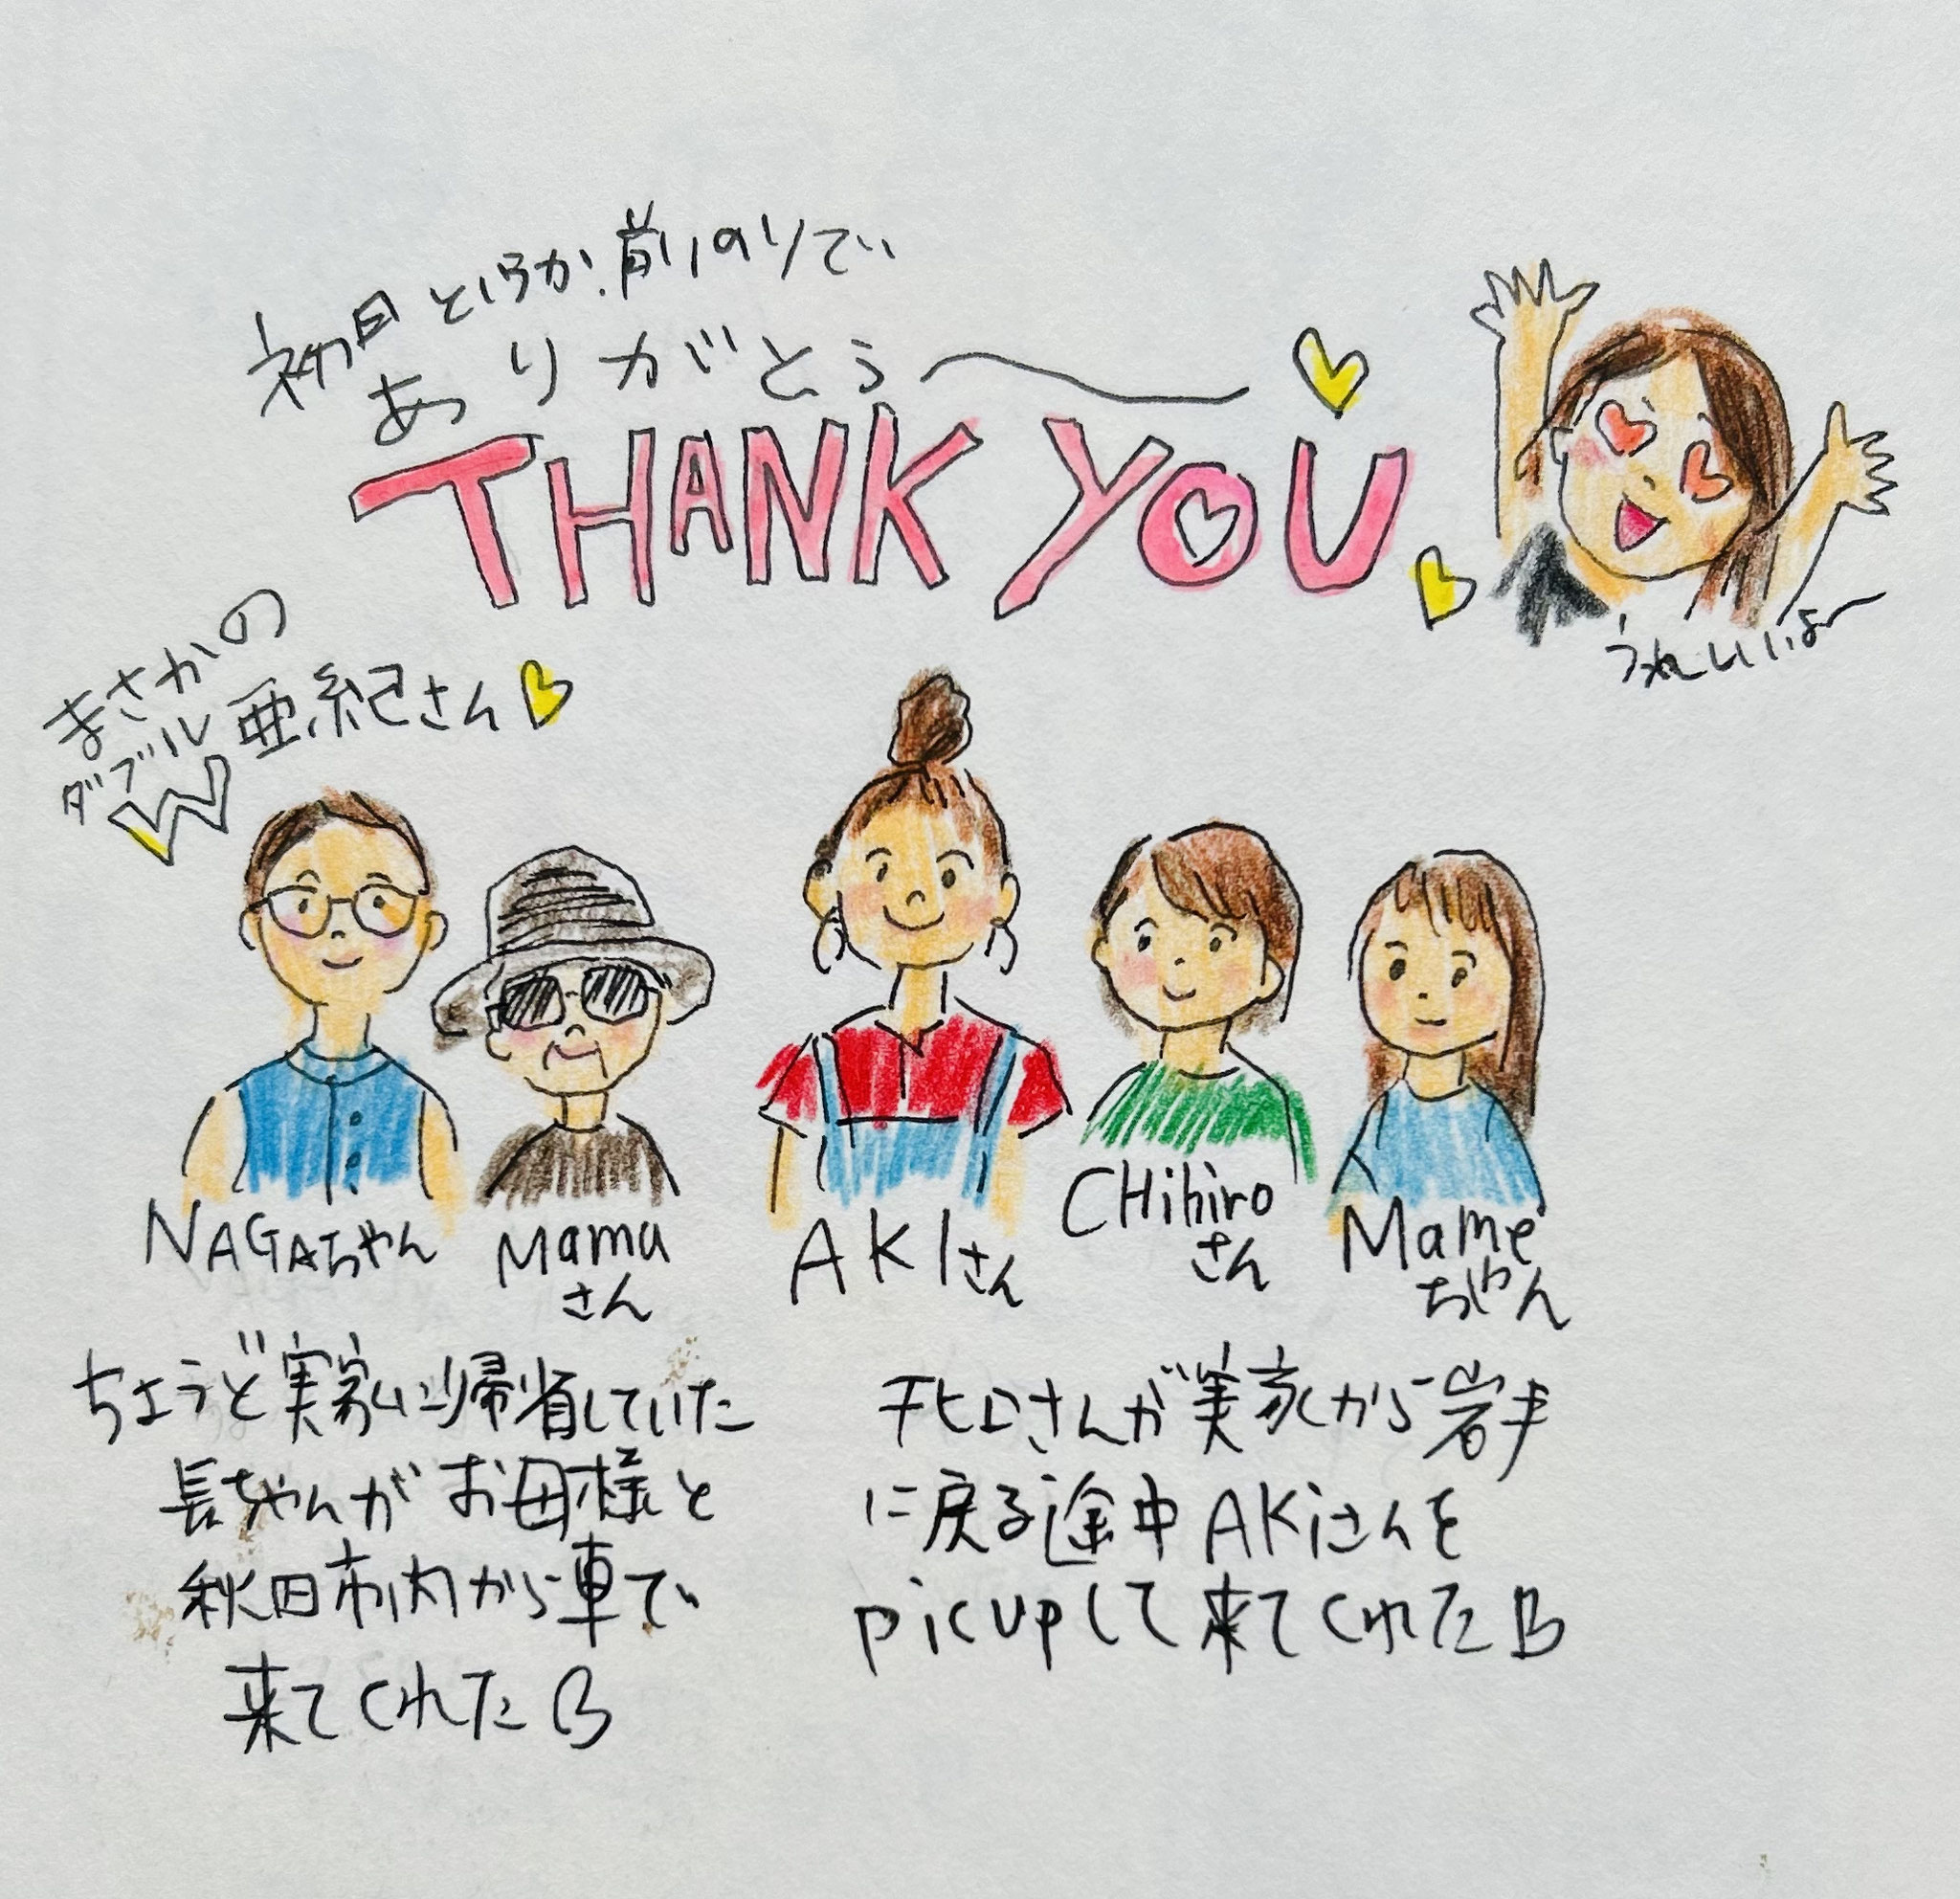 初日というか、前のりで
ありがとう〜
THANK YOU
うれしいよ〜
まさかの
ダブル
W亜紀さん
NAGAちゃん
Mama
さん
AKIさん
CHihiro
さん
Mame
ちゃん
ちょうど実家に帰省していた
長ちゃんがお母様と
秋田市内から車で
来てくれた
千ヒロさんが実家から岩手
に戻る途中AKiさんを
picupして来てくれた